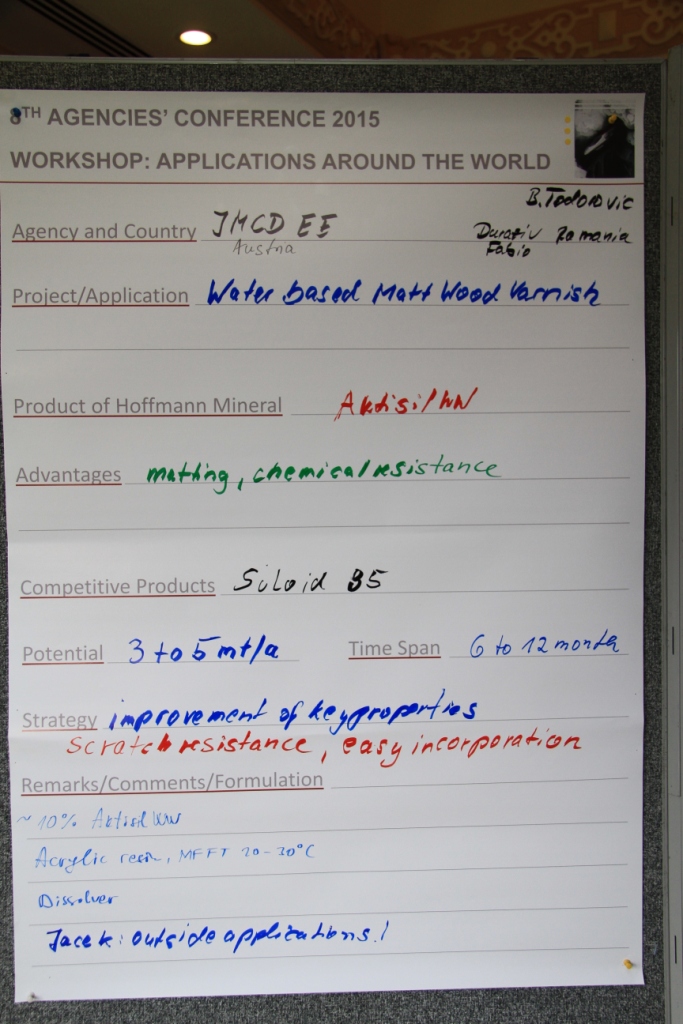 8TH AGENCIES' CONFERENCE 2015
WORKSHOP: APPLICATIONS AROUND THE WORLD
B. Todorovic
Agency and Country IMCD EE
Austria
Romania
Fabio
Project/Application Water based Matt Wood Varnish
Product of Hoffmann Mineral Aktisil WW
Advantages matting, chemical resistance
Competitive Products Siloid 35
Potential 3 to 5 mt/a Time Span 6 to 12 month
Strategy improvement of key properties
scratch resistance, easy incorporation
Remarks/Comments/Formulation
~10% Aktisil WW
Acrylic resin, MFFT 20-30°C
Dissolver
Jacek: outside applications!